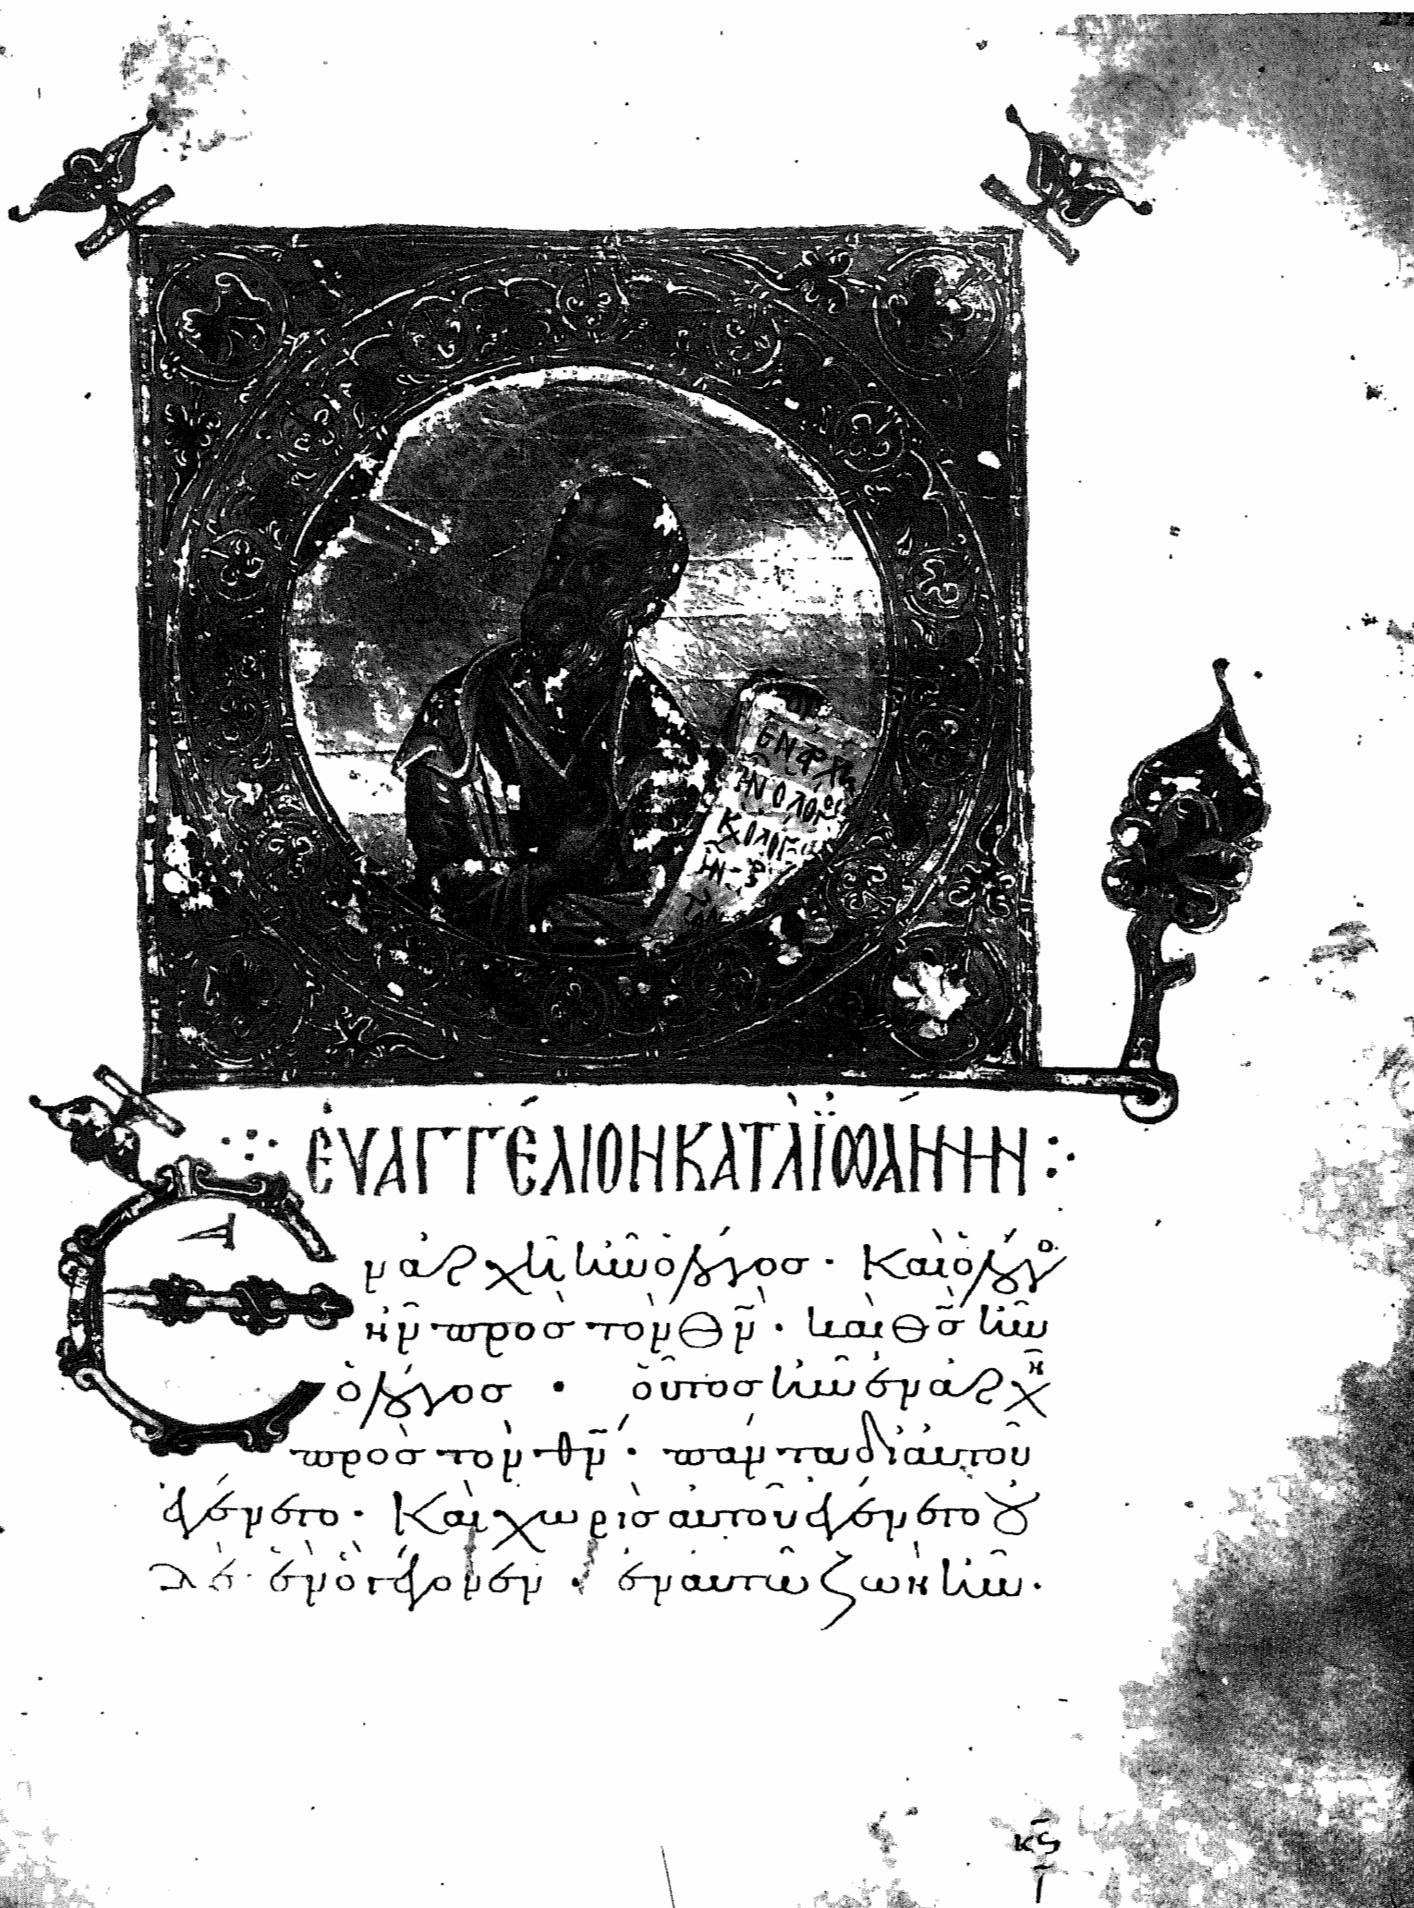 ΕΝ ΑΡΧΗ
ΗΝ Ο ΛΟΓΟς
Κ Ο ΛΟΓ
ΗΝ
ΕΥΑΓΓΈΛΙΟΝ ΚΑΤᾺ ἸΩΆΝΝΗΝ
Α
Ἐν ἀρχῆ ἦν ὁ λόγος · Καὶ ὁ λόγο
ἦν πρὸς τὸν Θ̅Ν̅ · καὶ Θ̅ς̅ ἦν
ὁ λόγος · οὗτος ἦν ἐν ἀρχῆ
πρὸς τὸν θ̅ν̅ · πάντα δι αὐτοῦ
ἐγένετο · Καὶ χωρὶς αὐτοῦ ἐγένετο οὐ
δὲ ἓν ὃ γέγονεν · ἐν αὐτῶ ζωὴ ἦν ·
κ̅ς̅